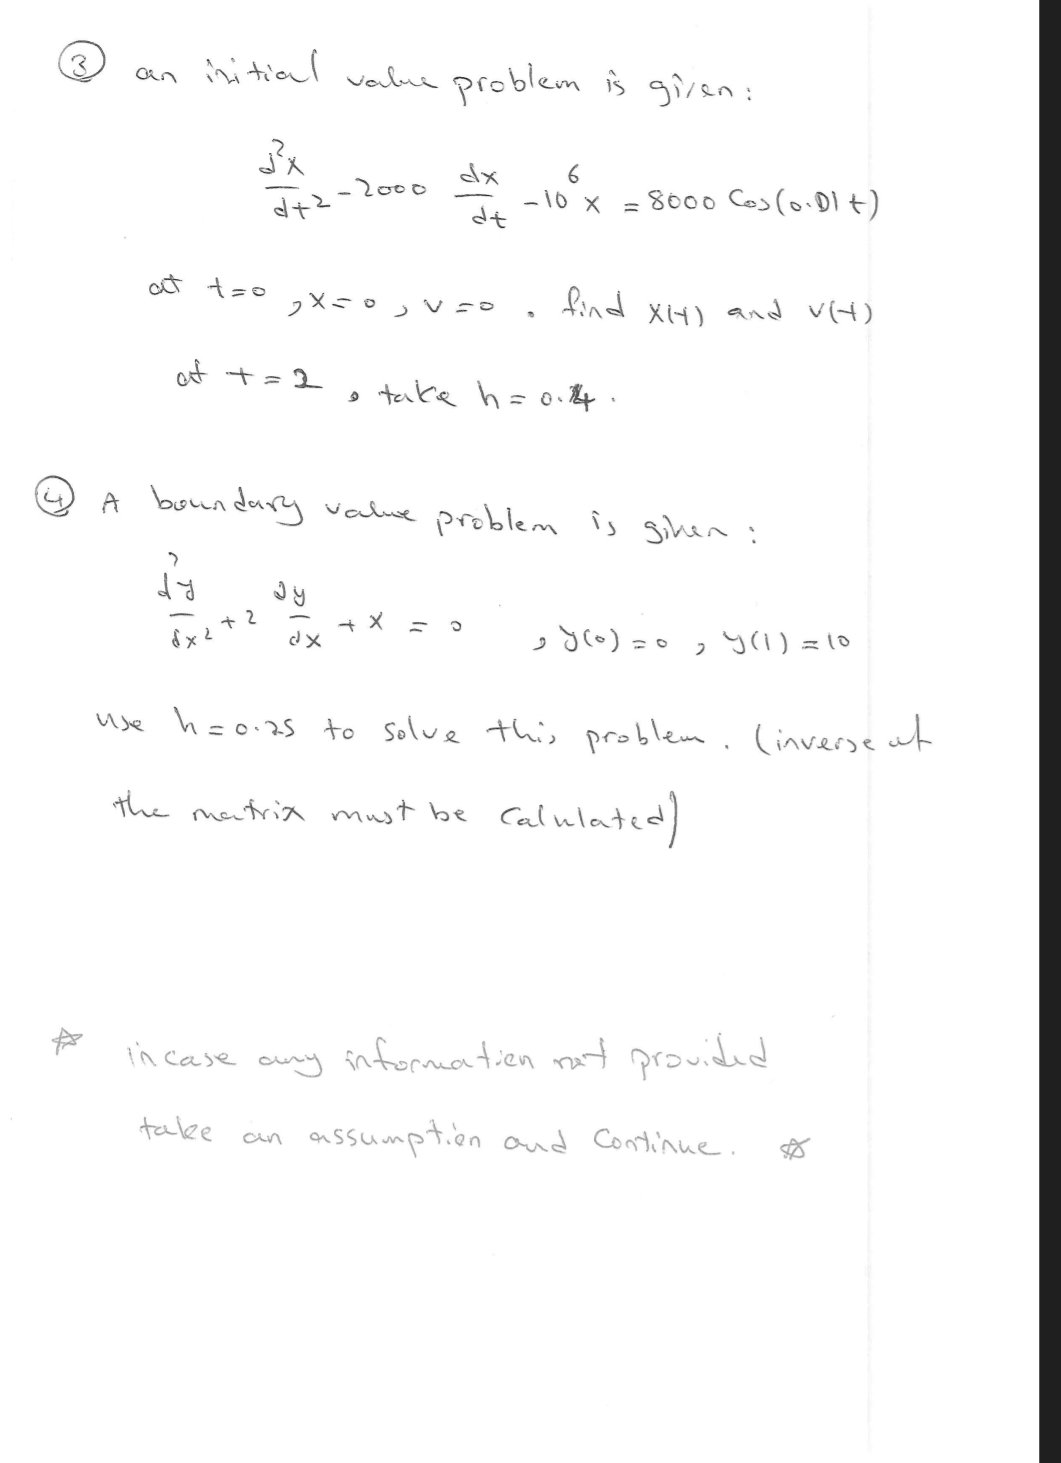 ③ an initial value problem is given:
d²x/dt² - 2000 dx/dt - 10⁶ x = 8000 Cos(0.01t)
at t=0 , x=0 , v=0 . find x(t) and v(t)
at t=2 , take h=0.4 .
④ A boundary value problem is given :
d²y/dx² + 2 dy/dx + x = 0 , y(0)=0 , y(1)=10
use h=0.25 to solve this problem. (inverse of
the matrix must be calulated)
☆ in case any information not provided
take an assumption and Continue. ☆